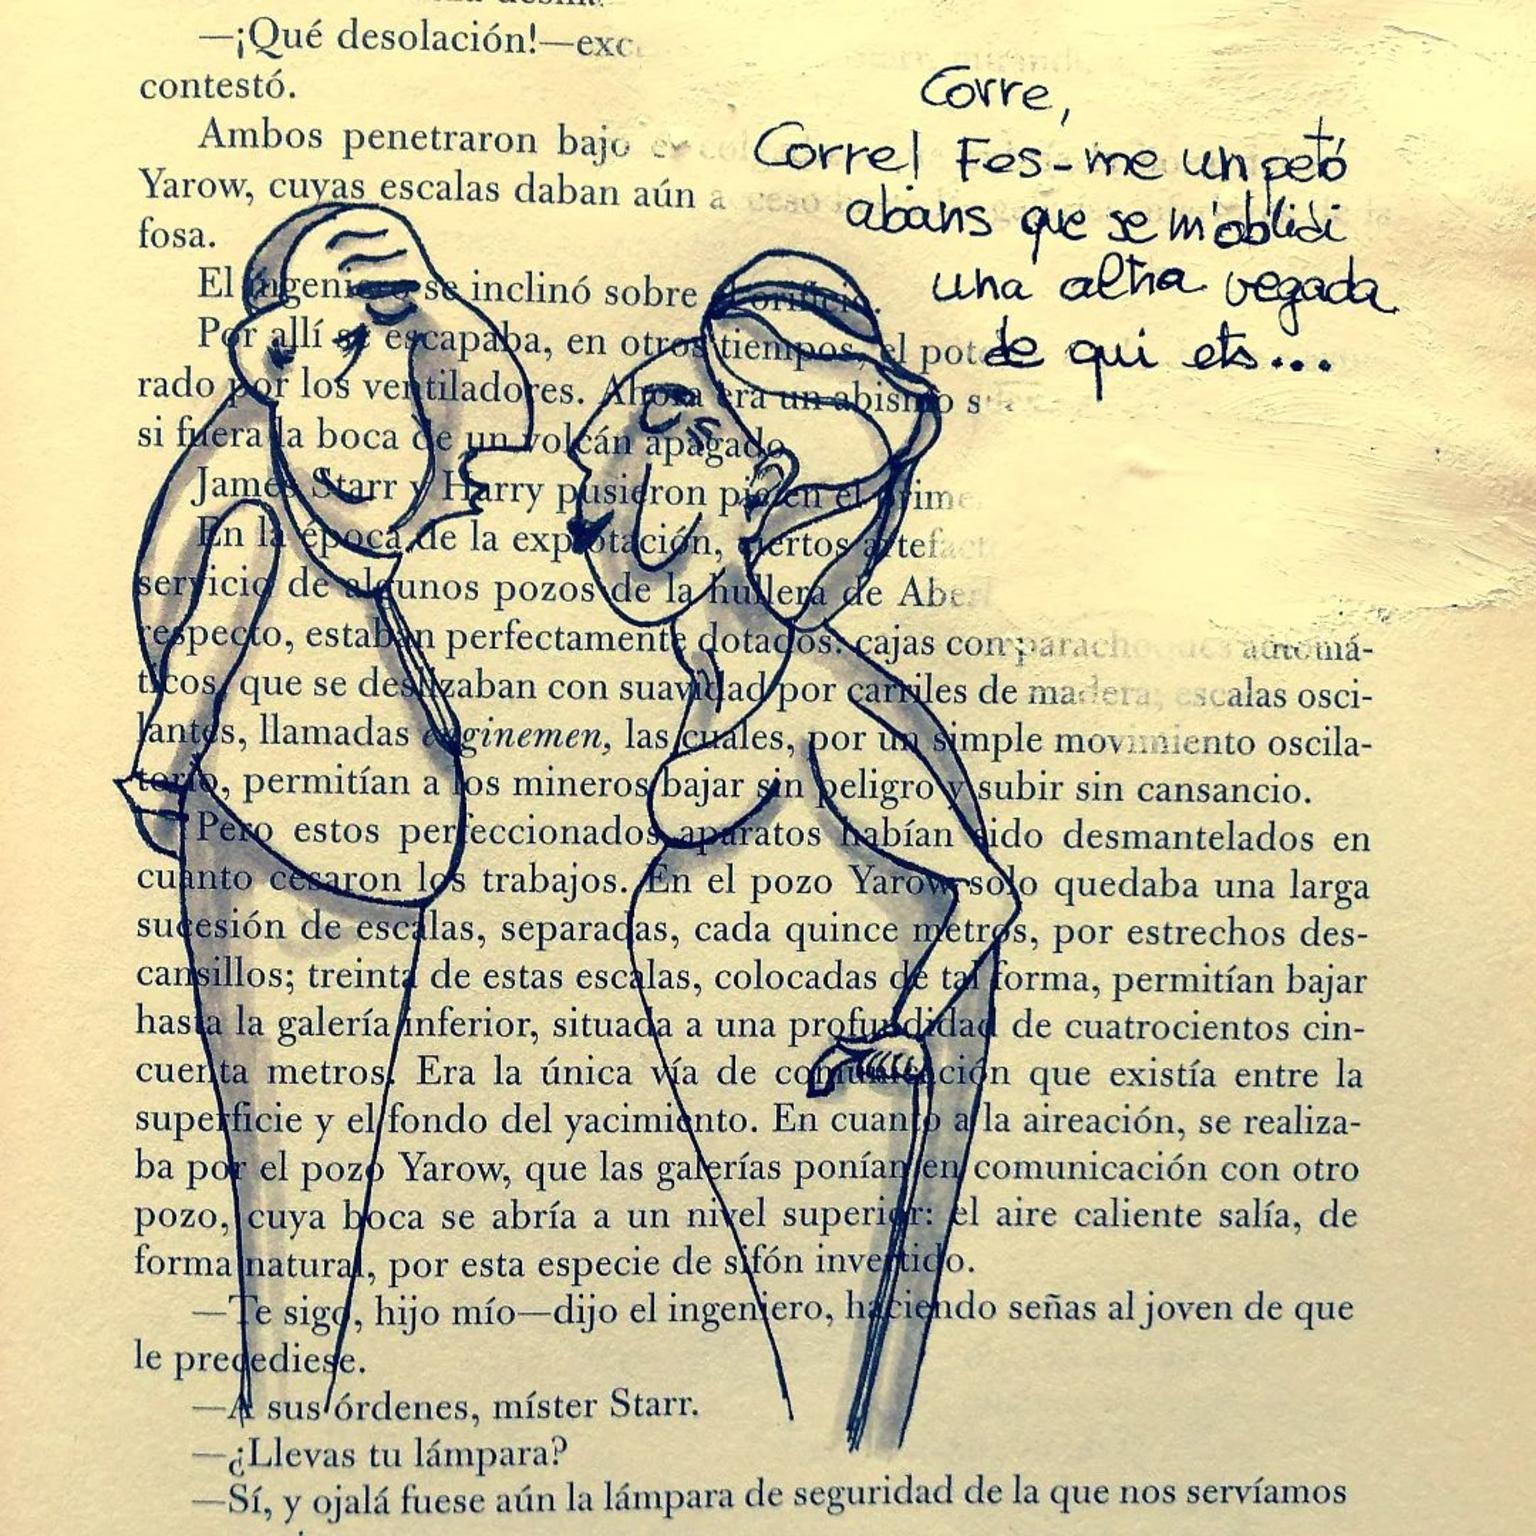 —¡Qué desolación!—exc
contestó.
Ambos penetraron bajo
Yarow, cuyas escalas daban aún
fosa.
El ingeniero se inclinó sobre el orificio.
Por allí se escapaba, en otros tiempos, el pot
rado por los ventiladores. Ahora era un abismo s
si fuera la boca de un volcán apagado.
James Starr y Harry pusieron pie en el prime
En la época de la explotación, ciertos artefact
servicio de algunos pozos de la hullera de Aber
respecto, estaban perfectamente dotados: cajas con parachoques automá-
ticos, que se deslizaban con suavidad por carriles de madera; escalas osci-
lantes, llamadas enginemen, las cuales, por un simple movimiento oscila-
torio, permitían a los mineros bajar sin peligro y subir sin cansancio.
Pero estos perfeccionados aparatos habían sido desmantelados en
cuanto cesaron los trabajos. En el pozo Yarow solo quedaba una larga
sucesión de escalas, separadas, cada quince metros, por estrechos des-
cansillos; treinta de estas escalas, colocadas de tal forma, permitían bajar
hasta la galería inferior, situada a una profundidad de cuatrocientos cin-
cuenta metros. Era la única vía de comunicación que existía entre la
superficie y el fondo del yacimiento. En cuanto a la aireación, se realiza-
ba por el pozo Yarow, que las galerías ponían en comunicación con otro
pozo, cuya boca se abría a un nivel superior: el aire caliente salía, de
forma natural, por esta especie de sifón invertido.
—Te sigo, hijo mío—dijo el ingeniero, haciendo señas al joven de que
le precediese.
—A sus órdenes, míster Starr.
—¿Llevas tu lámpara?
—Sí, y ojalá fuese aún la lámpara de seguridad de la que nos servíamos
Corre,
Corre! Fes-me un petó
abans que se m'oblidi
una altra vegada
de qui ets...